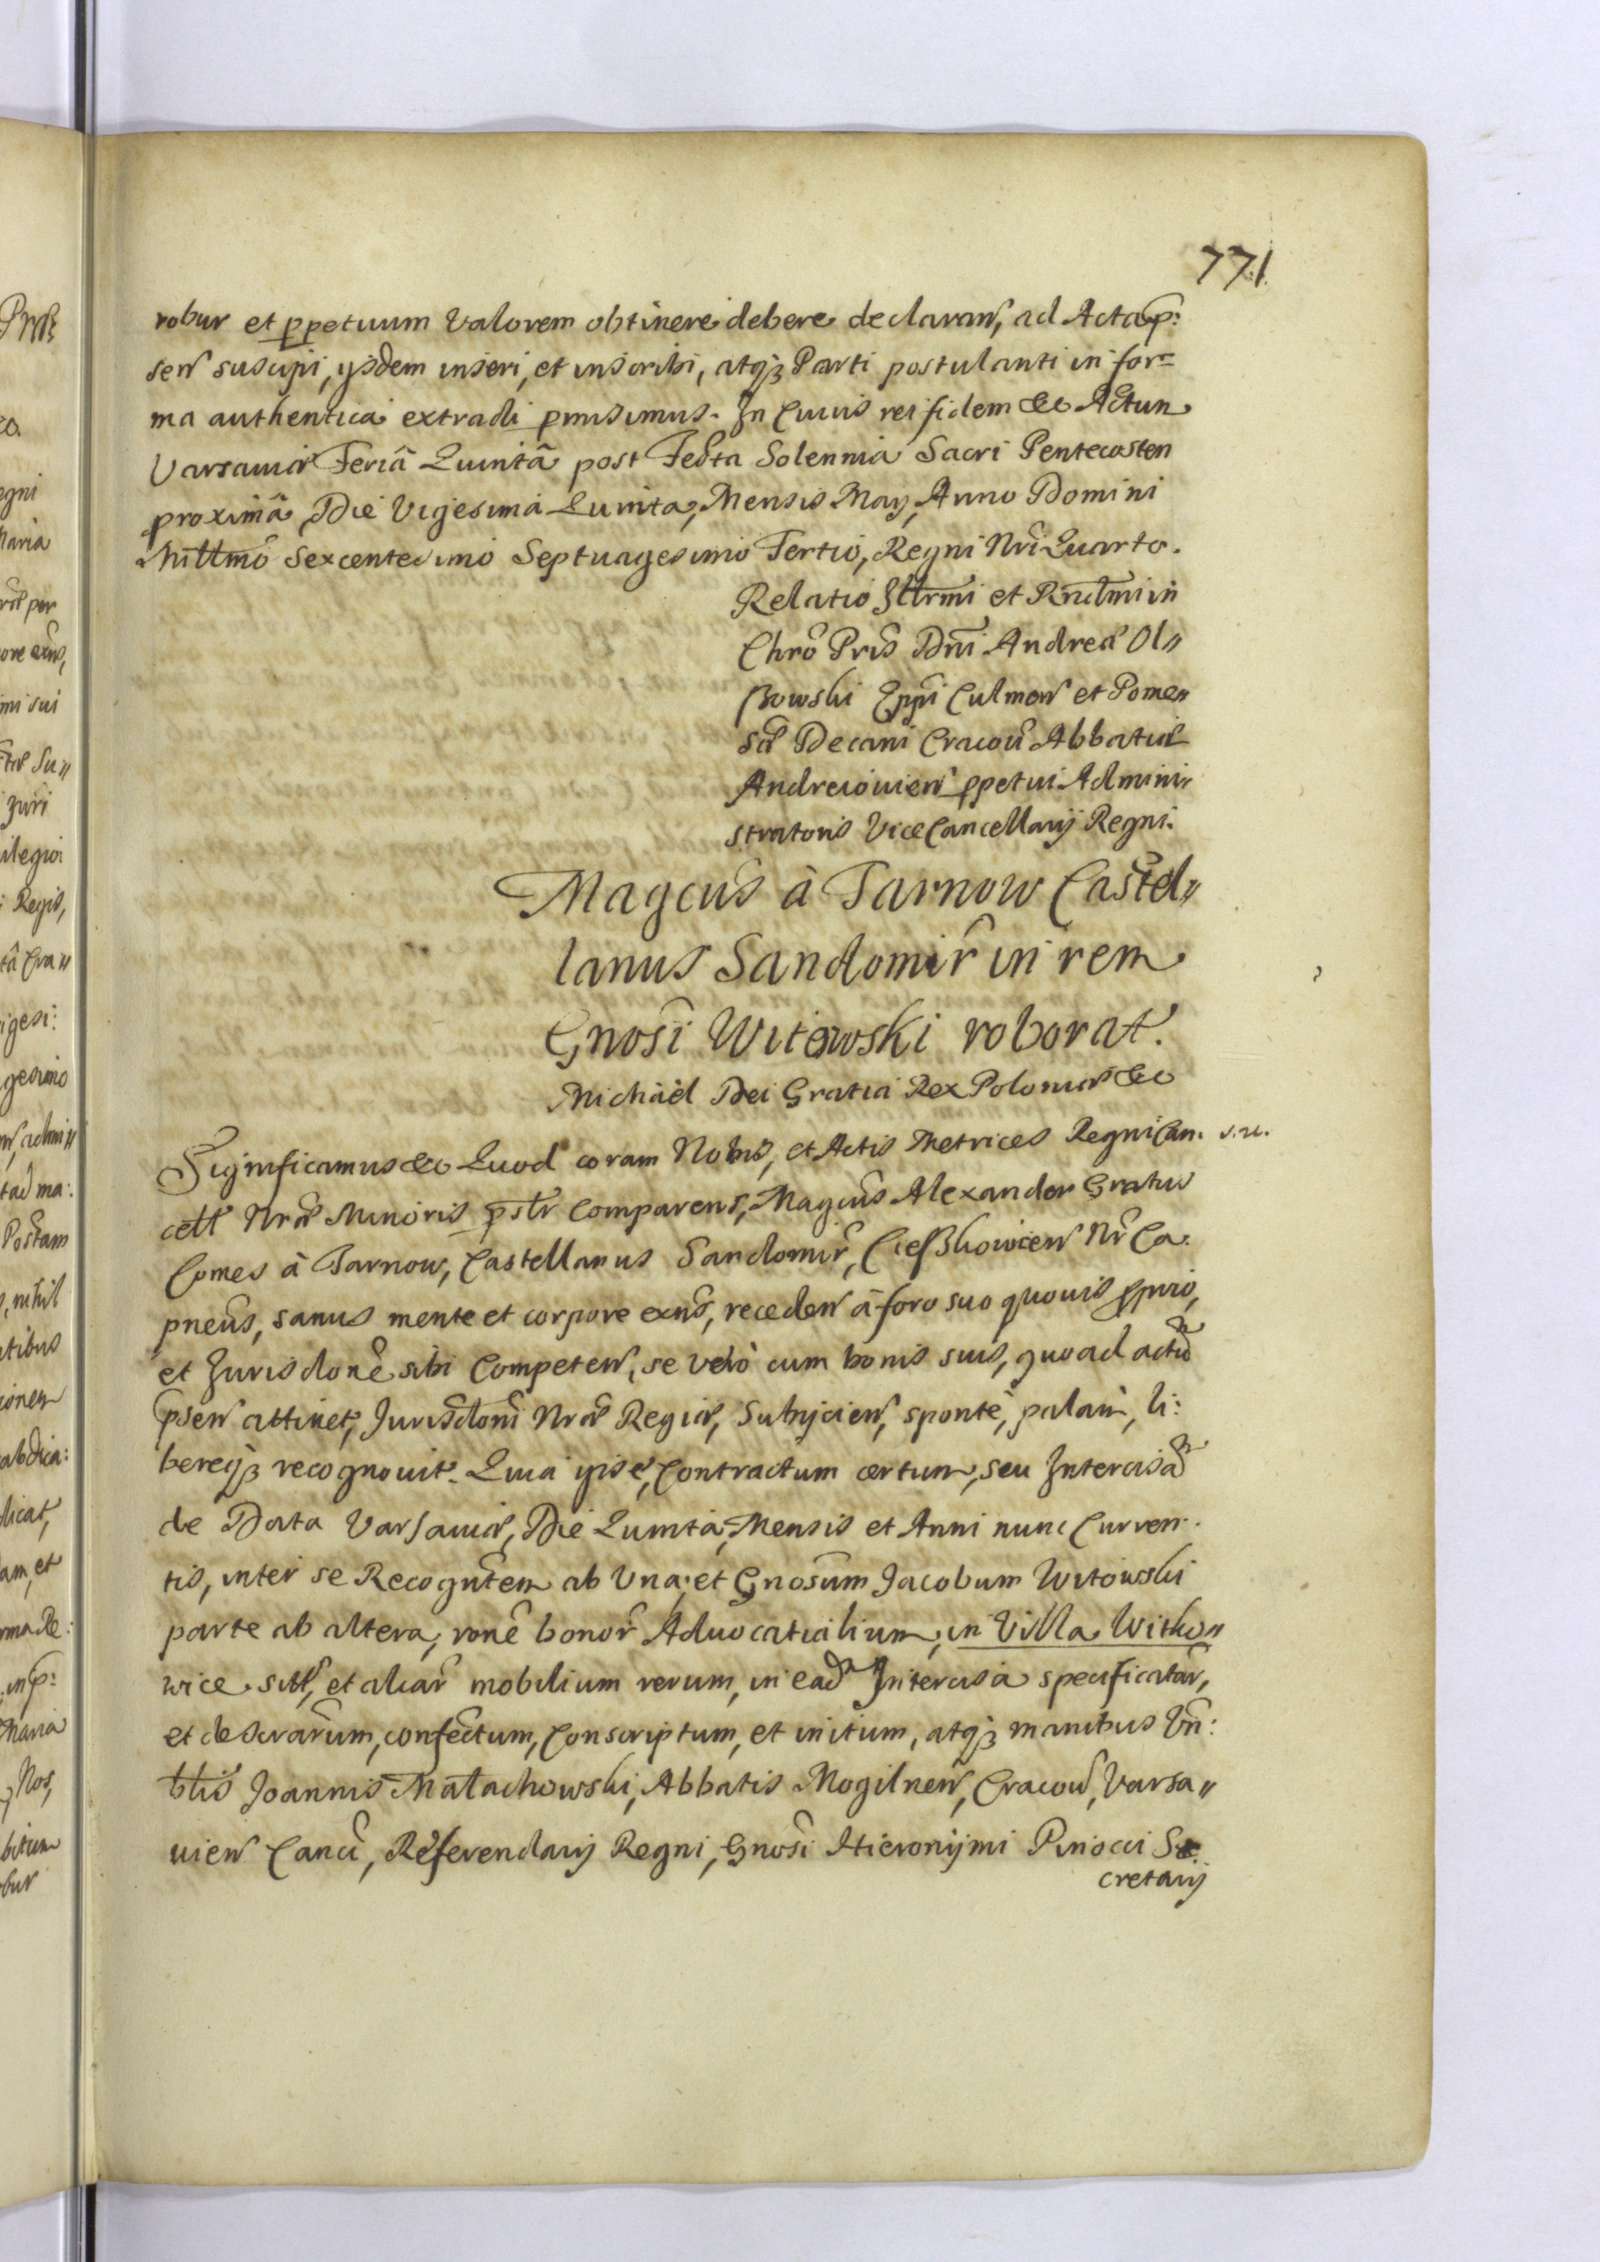 771
robur et ppetuum Valorem obtinere debere declaran̂, ad Acta p̃:
sen̂ suscipi, ysdem inseri, et inscribi, atqȝ Parti postulanti in for-
ma authentica extradi pmisimus. In Cuius rei fidem &c Actum
Varsauiæ Feriâ Quintâ post Festa Solennia Sacri Pentecosten
proximâ, Die Vigesima Quinta, Mensis May, Anno Domini
Millm̃o Sexcentesimo Septuagesimo Tertio, Regni Nr̃i Quarto.
Relatio Illr̃mi et Rndl̃mi in
Chrõ Pris̃ Dñi Andreæ Ol„
ßowski Epp̃i Culmen̂ et Pome„
sã Decani Cracou̴ Abbatiæ
Andreiouien̂ ppetui Admini„
stratoris ViceCancellarij Regni.
Magcus̃ à Tarnow Castel„
lanus Sandomir̃ in rem
Gnosĩ Witowski roborat.
Michaël Dei Gratia Rex Poloniæ &c
Significamus &c Quod coram Nobis, et Actis Metrices Regni Can. s.n.
cell̃ Nræ̃ Minoris p̃str̃ Comparens, Magcus̃ Alexander Gratus
Comes à Tarnow, Castellanus Sandomir̃, Cießkowicen̂ Nr̃ Ca.
pneus̃, sanus mente et corpore exñs, receden̂ à foro suo quouis pprio,
et Jurisdonẽ sibi Competen̂, se verò cum bonis suis, quoad actũ
p̃sen̂ attinet, Jurisdonĩ Nræ̃ Regiæ, Subijcien̂, spontè, palàm, li:
bereqȝ recognouit. Quia ipse, Contractum certum, seu Intercisã
de Data Varsauiæ, Die Quinta, Mensis et Anni nunc Curren.
tis, inter se Recogñtem ab Vna, et Gnosũm Jacobum Witowski
parte ab altera, ronẽ bonor̃ Aduocatialium, in Villa Witko„
wice sitt̃, et aliar̃ mobilium rerum, in ead̃ Intercisa specificatar̃,
et descrar̃um, confectum, Conscriptum, et initum, atqȝ manibus Vñ:
bliš Joannis Małachowski, Abbatis Mogilnen̂, Cracou̴, Varsa„
uien̂ Cancĩ, Referendarij Regni, Gnosĩ Hieronijmi Pinocci Se
cretarij